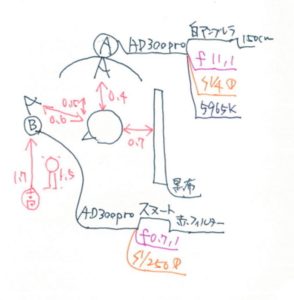 A
AD300pro
白アンブレラ
150cm
f11,1
S1/4⏀
5965K
A
0.5
0.6
0.4
B
0.7
1.7
高
1.5
黒布
AD300pro
スヌート
赤フィルター
f0.7,1
S1/250⏀